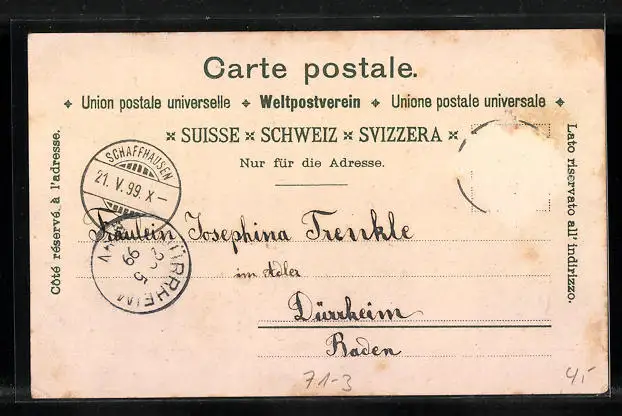 Carte postale.
✦ Union postale universelle ✦ Weltpostverein ✦ Unione postale universale ✦
× SUISSE × SCHWEIZ × SVIZZERA ×
Nur für die Adresse.
Côté réservé à l'adresse.
Lato riservato all' indirizzo.
SCHAFFHAUSEN
21. V. 99. X–
Fräulein Josephina Trenkle
im Adler
Dürrheim
Baden
DÜRRHEIM
5
99
71-3
4,-